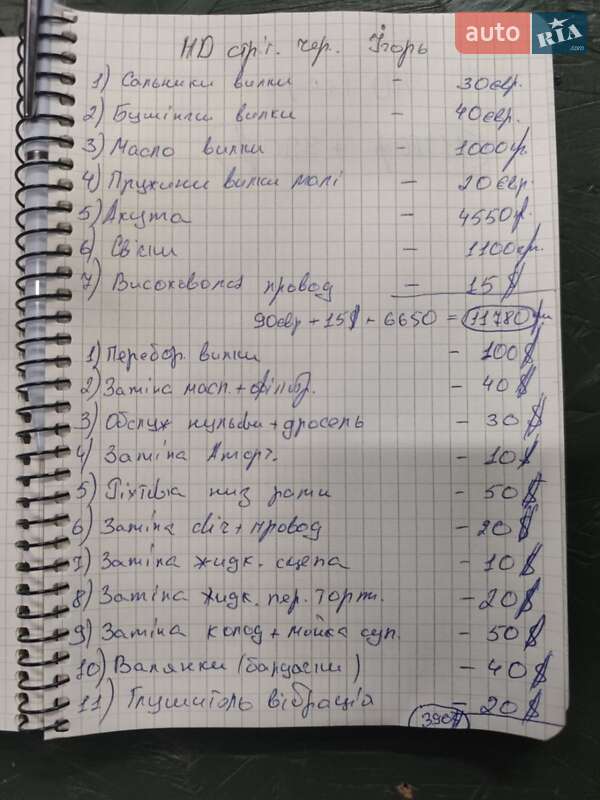 auto RIA .com
HD стріт. чер. Ігорь
1) Сальники вилки - 30євр.
2) Бушінги вилки - 40євр.
3) Масло вилки - 1000гр.
4) Пружини вилки малі - 20євр.
5) Акума - 4550гр.
6) Свічи - 1100гр.
7) Високовольт провод - 15$
90євр + 15$ - 6650 = 11780грн
1) Перебор. вилки - 100$
2) Заміна масл + фільтр. - 40$
3) Обслуж нульви + дросель - 30$
4) Заміна Аморт. - 10$
5) Ріхтовка низ рами - 50$
6) Заміна свіч + провод - 20$
7) Заміна жидк. сцепа - 10$
8) Заміна жидк. пер. Торм. - 20$
9) Заміна колод + мойка суп. - 50$
10) Валянки (бардачки) - 40$
11) Глушитель вібрація - 20$
390$